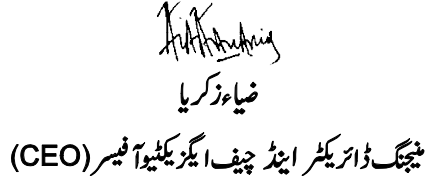 ضیاء زکریا
منیجنگ ڈائریکٹر اینڈ چیف ایگزیکٹیو آفیسر (CEO)